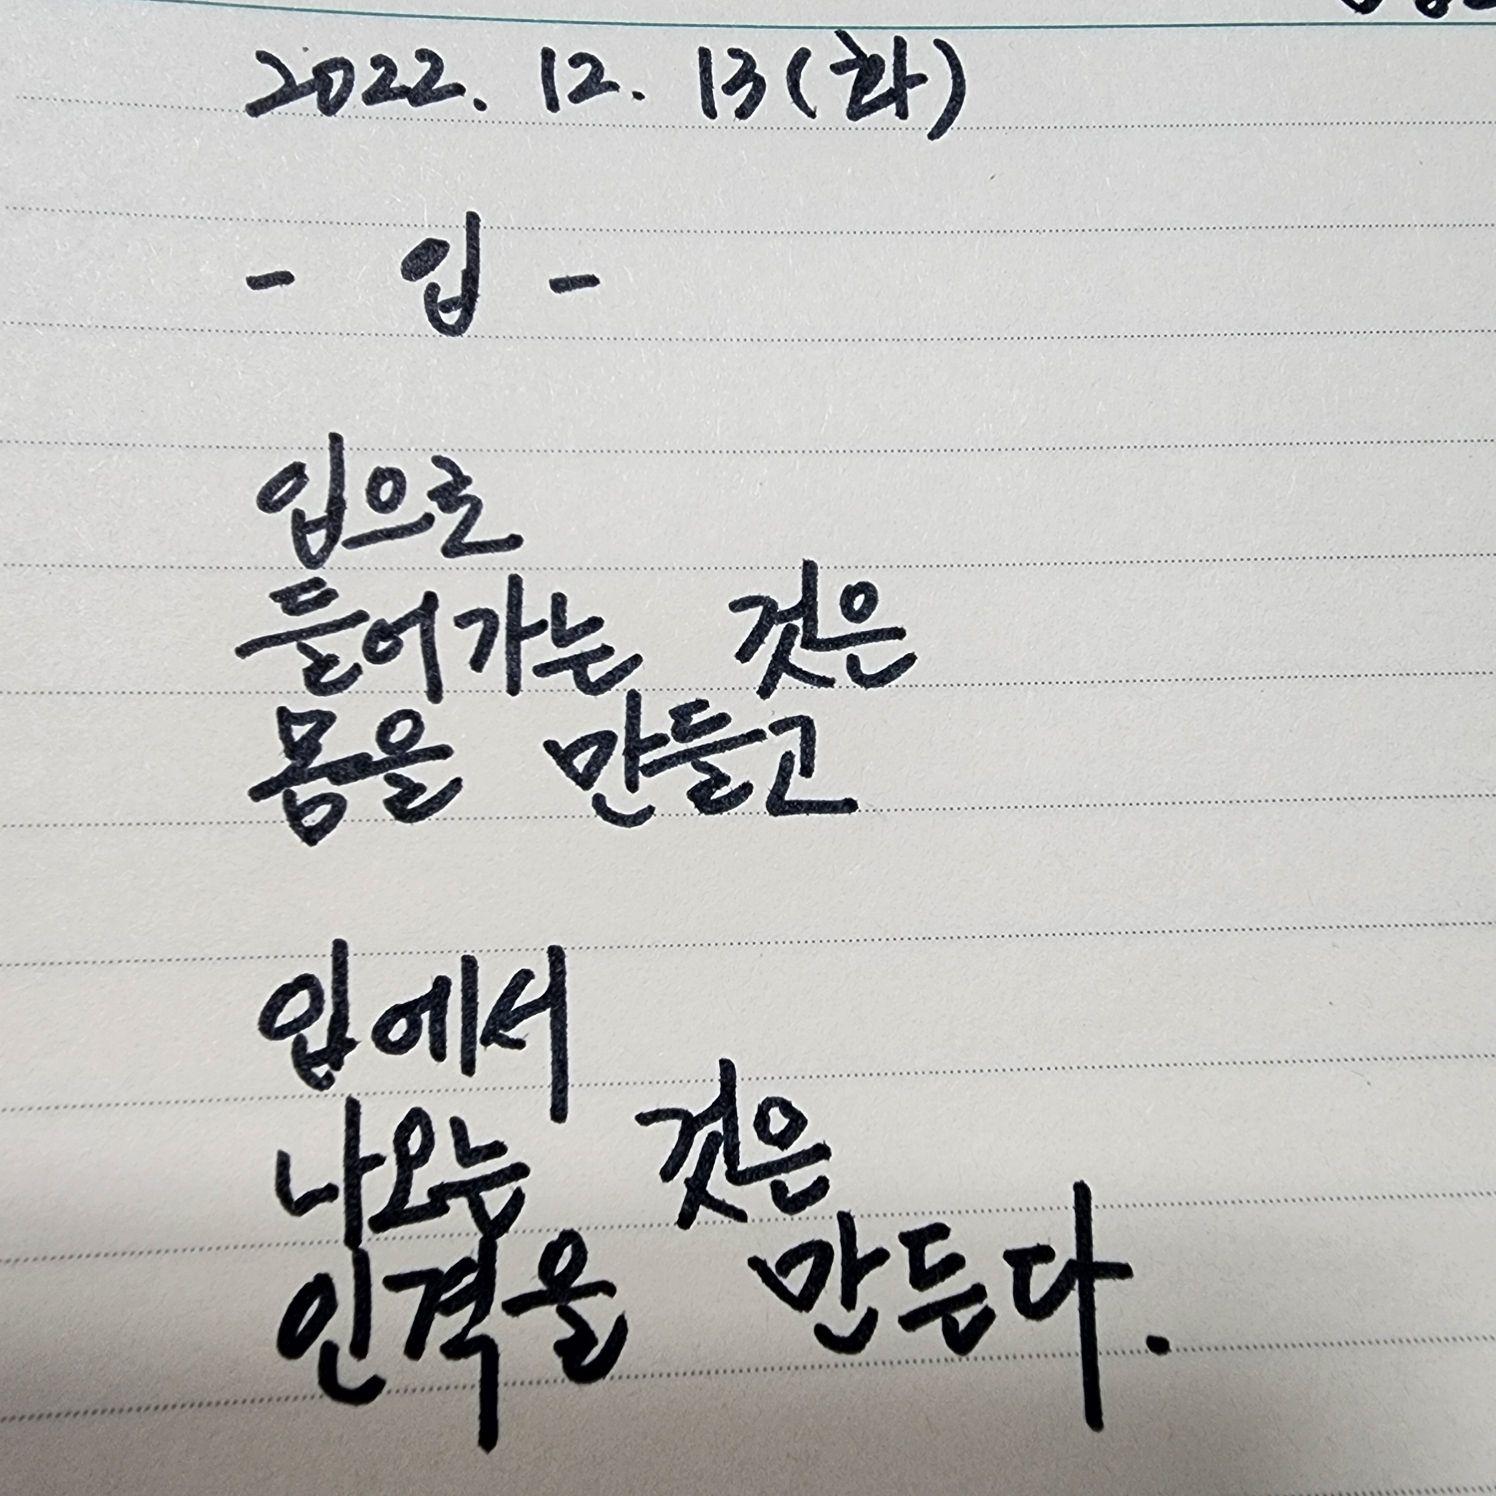 2022. 12. 13(화)
- 입 -
입으로
들어가는 것은
몸을 만들고
입에서
나오는 것은
인격을 만든다.